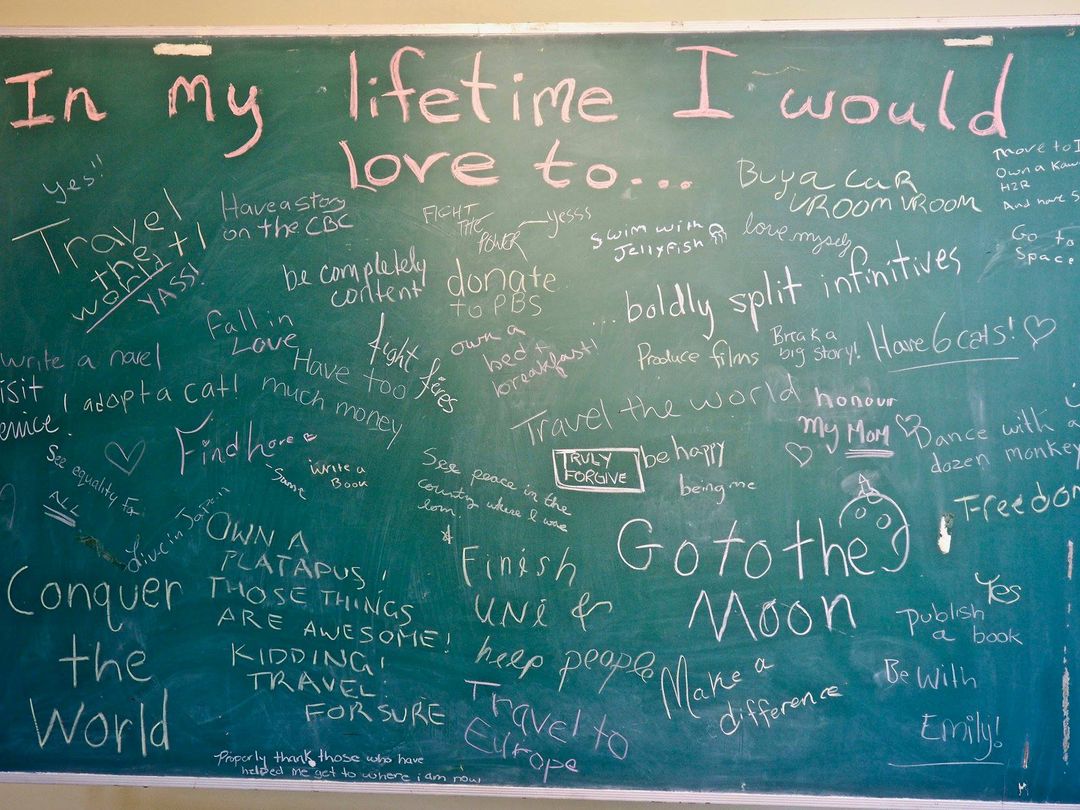 In my lifetime I would
love to...
yes!!
Travel
the
world!
YASS!
Have a story
on the CBC
FIGHT
THE
POWER
yesss
swim with
Jellyfish
Buy a car
VROOM VROOM
love myself
move to
Own a
H2R
And have
Go to
Space
be completely
content
donate
to PBS
...boldly split infinitives
Fall in
Love
fight fires
own a
bed &
breakfast!
Produce films
Break a
big story!
Have 6 cats!
write a novel
Have too
much money
adopt a cat!
Travel the world
honour
my MOM
Dance with a
dozen monkey
Find hope
- Same
write a
Book
See equality for
ALL
Live in Japan
See peace in the
country where I was
born.
TRULY
FORGIVE
be happy
being me
Freedom
OWN A
PLATAPUS!
THOSE THINGS
ARE AWESOME!
KIDDING!
TRAVEL
FOR SURE
Conquer
the
World
Finish
uni &
help people
Go to the
Moon
Yes
Publish
a book
Travel to
Europe
Make a
difference
Be With
Emily!
Properly thank those who have
helped me get to where i am now